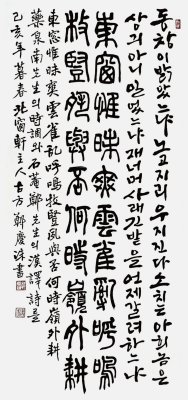 동창이 밝았느냐 노고지리 우지진다 소치는 아희놈은
상긔 아니 일었느냐 재너머 사래 긴 밭을 언제 갈려 하느냐
東窗惟昧爽雲雀亂呼鳴
牧豎夙興否何時嶺外耕
東窓惟昧爽雲雀乱呼鳴牧豎夙興否何時嶺外耕
藥泉南先生의 時調와 石菴鄭先生의 漢譯詩를
己亥年暮春北窗軒主人古方鄭慶洙書